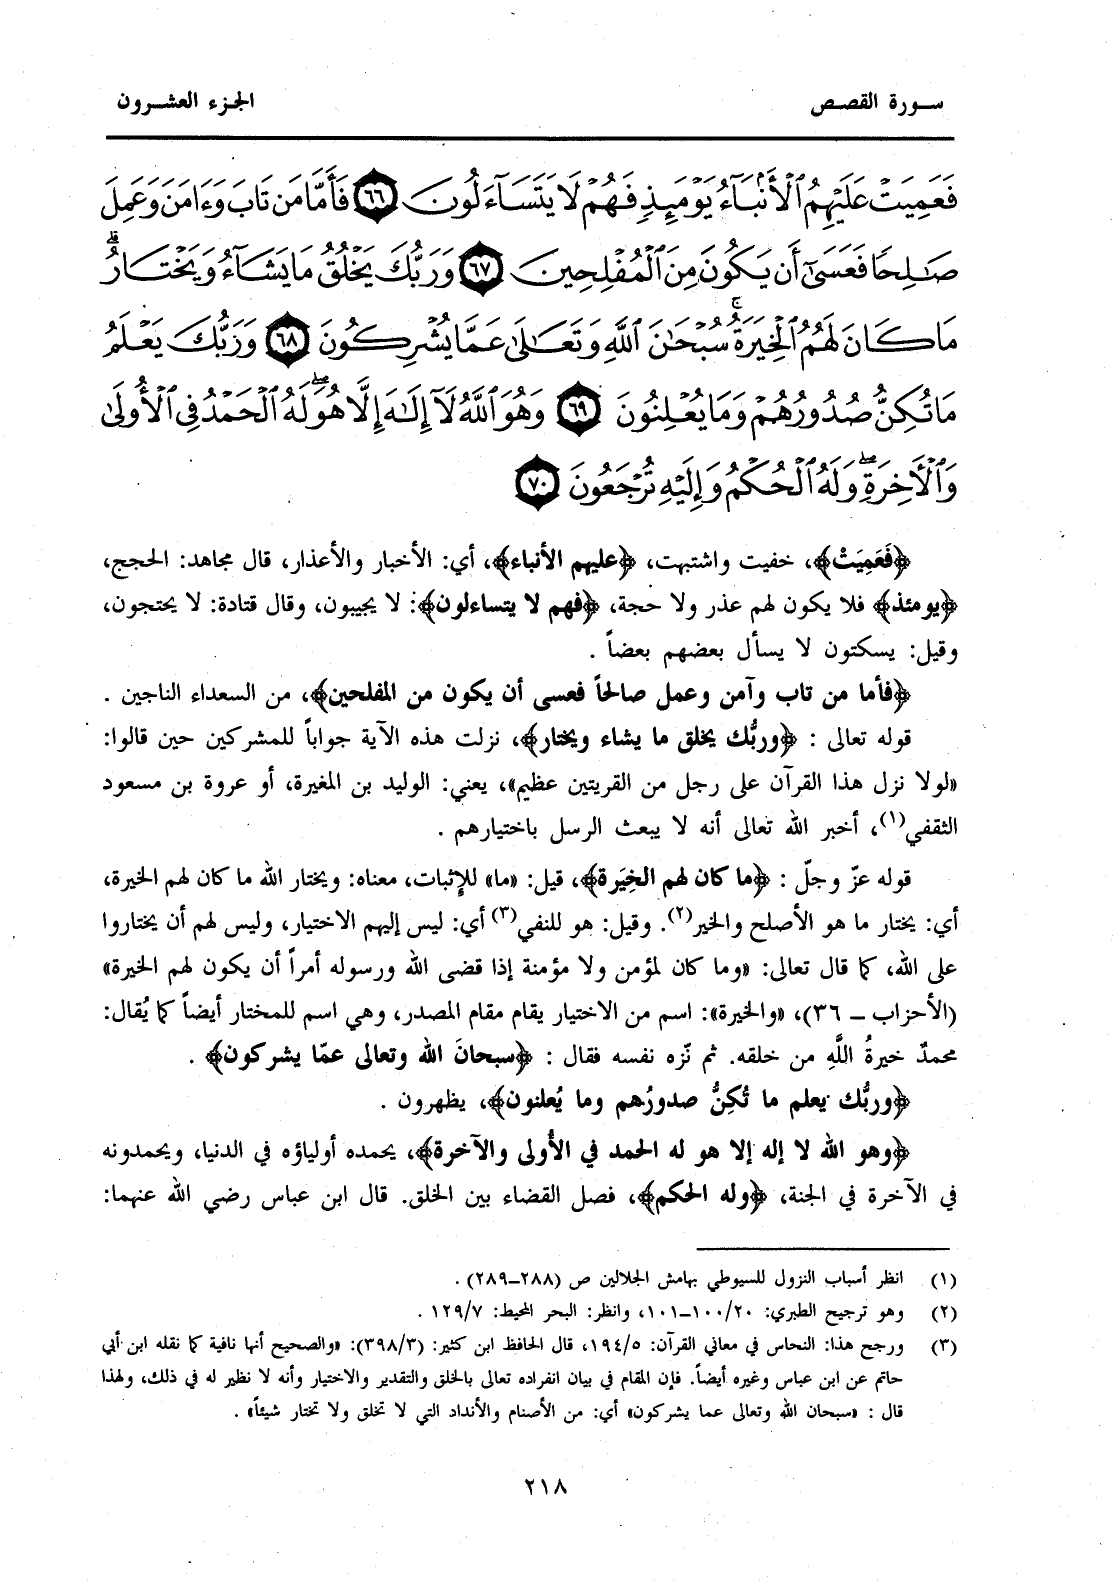 سورة القصص
الجزء العشرون
فَعَمِيَتْ عَلَيْهِمُ ٱلْأَنۢبَآءُ يَوْمَئِذٍ فَهُمْ لَا يَتَسَآءَلُونَ ٦٦ فَأَمَّا مَن تَابَ وَءَامَنَ وَعَمِلَ
صَـٰلِحًا فَعَسَىٰٓ أَن يَكُونَ مِنَ ٱلْمُفْلِحِينَ ٦٧ وَرَبُّكَ يَخْلُقُ مَا يَشَآءُ وَيَخْتَارُ ۗ
مَا كَانَ لَهُمُ ٱلْخِيَرَةُ ۚ سُبْحَـٰنَ ٱللَّهِ وَتَعَـٰلَىٰ عَمَّا يُشْرِكُونَ ٦٨ وَرَبُّكَ يَعْلَمُ
مَا تُكِنُّ صُدُورُهُمْ وَمَا يُعْلِنُونَ ٦٩ وَهُوَ ٱللَّهُ لَآ إِلَـٰهَ إِلَّا هُوَ ۖ لَهُ ٱلْحَمْدُ فِى ٱلْأُولَىٰ
وَٱلْـَٔاخِرَةِ ۖ وَلَهُ ٱلْحُكْمُ وَإِلَيْهِ تُرْجَعُونَ ٧٠
﴿فَعَمِيَتْ﴾، خفيت واشتبهت، ﴿عليهم الأنباء﴾، أي: الأخبار والأعذار، قال مجاهد: الحجج،
﴿يومئذ﴾ فلا يكون لهم عذر ولا حجة، ﴿فهم لا يتساءلون﴾: لا يجيبون، وقال قتادة: لا يحتجون،
وقيل: يسكتون لا يسأل بعضهم بعضاً .
﴿فأما من تاب وآمن وعمل صالحاً فعسى أن يكون من المفلحين﴾، من السعداء الناجين .
قوله تعالى : ﴿وربُّك يخلق ما يشاء ويختار﴾، نزلت هذه الآية جواباً للمشركين حين قالوا:
«لولا نزل هذا القرآن على رجل من القريتين عظيم»، يعني: الوليد بن المغيرة، أو عروة بن مسعود
الثقفي(١)، أخبر الله تعالى أنه لا يبعث الرسل باختيارهم .
قوله عزّ وجلّ : ﴿ما كان لهم الخِيَرة﴾، قيل: «ما» للإثبات، معناه: ويختار الله ما كان لهم الخيرة،
أي: يختار ما هو الأصلح والخير(٢). وقيل: هو للنفي(٣) أي: ليس إليهم الاختيار، وليس لهم أن يختاروا
على الله، كما قال تعالى: «وما كان لمؤمن ولا مؤمنة إذا قضى الله ورسوله أمراً أن يكون لهم الخيرة»
(الأحزاب ــ ٣٦)، «والخيرة»: اسم من الاختيار يقام مقام المصدر، وهي اسم للمختار أيضاً كما يُقال:
محمدٌ خيرةُ اللَّهِ من خلقه. ثم نزّه نفسه فقال : ﴿سبحانَ الله وتعالى عمّا يشركون﴾ .
﴿وربُّك يعلم ما تُكِنُّ صدورُهم وما يُعلنون﴾، يظهرون .
﴿وهو الله لا إله إلا هو له الحمد في الأُولى والآخرة﴾، يحمده أولياؤه في الدنيا، ويحمدونه
في الآخرة في الجنة، ﴿وله الحكم﴾، فصل القضاء بين الخلق. قال ابن عباس رضي الله عنهما:
(١) انظر أسباب النزول للسيوطي بهامش الجلالين ص (٢٨٨ــ٢٨٩) .
(٢) وهو ترجيح الطبري: ١٠٠/٢٠ــ١٠١، وانظر: البحر المحيط: ١٢٩/٧ .
(٣) ورجح هذا: النحاس في معاني القرآن: ١٩٤/٥، قال الحافظ ابن كثير: (٣٩٨/٣): «والصحيح أنها نافية كما نقله ابن أبي
حاتم عن ابن عباس وغيره أيضاً. فإن المقام في بيان انفراده تعالى بالخلق والتقدير والاختيار وأنه لا نظير له في ذلك، ولهذا
قال : «سبحان الله وتعالى عما يشركون» أي: من الأصنام والأنداد التي لا تخلق ولا تختار شيئاً» .
٢١٨